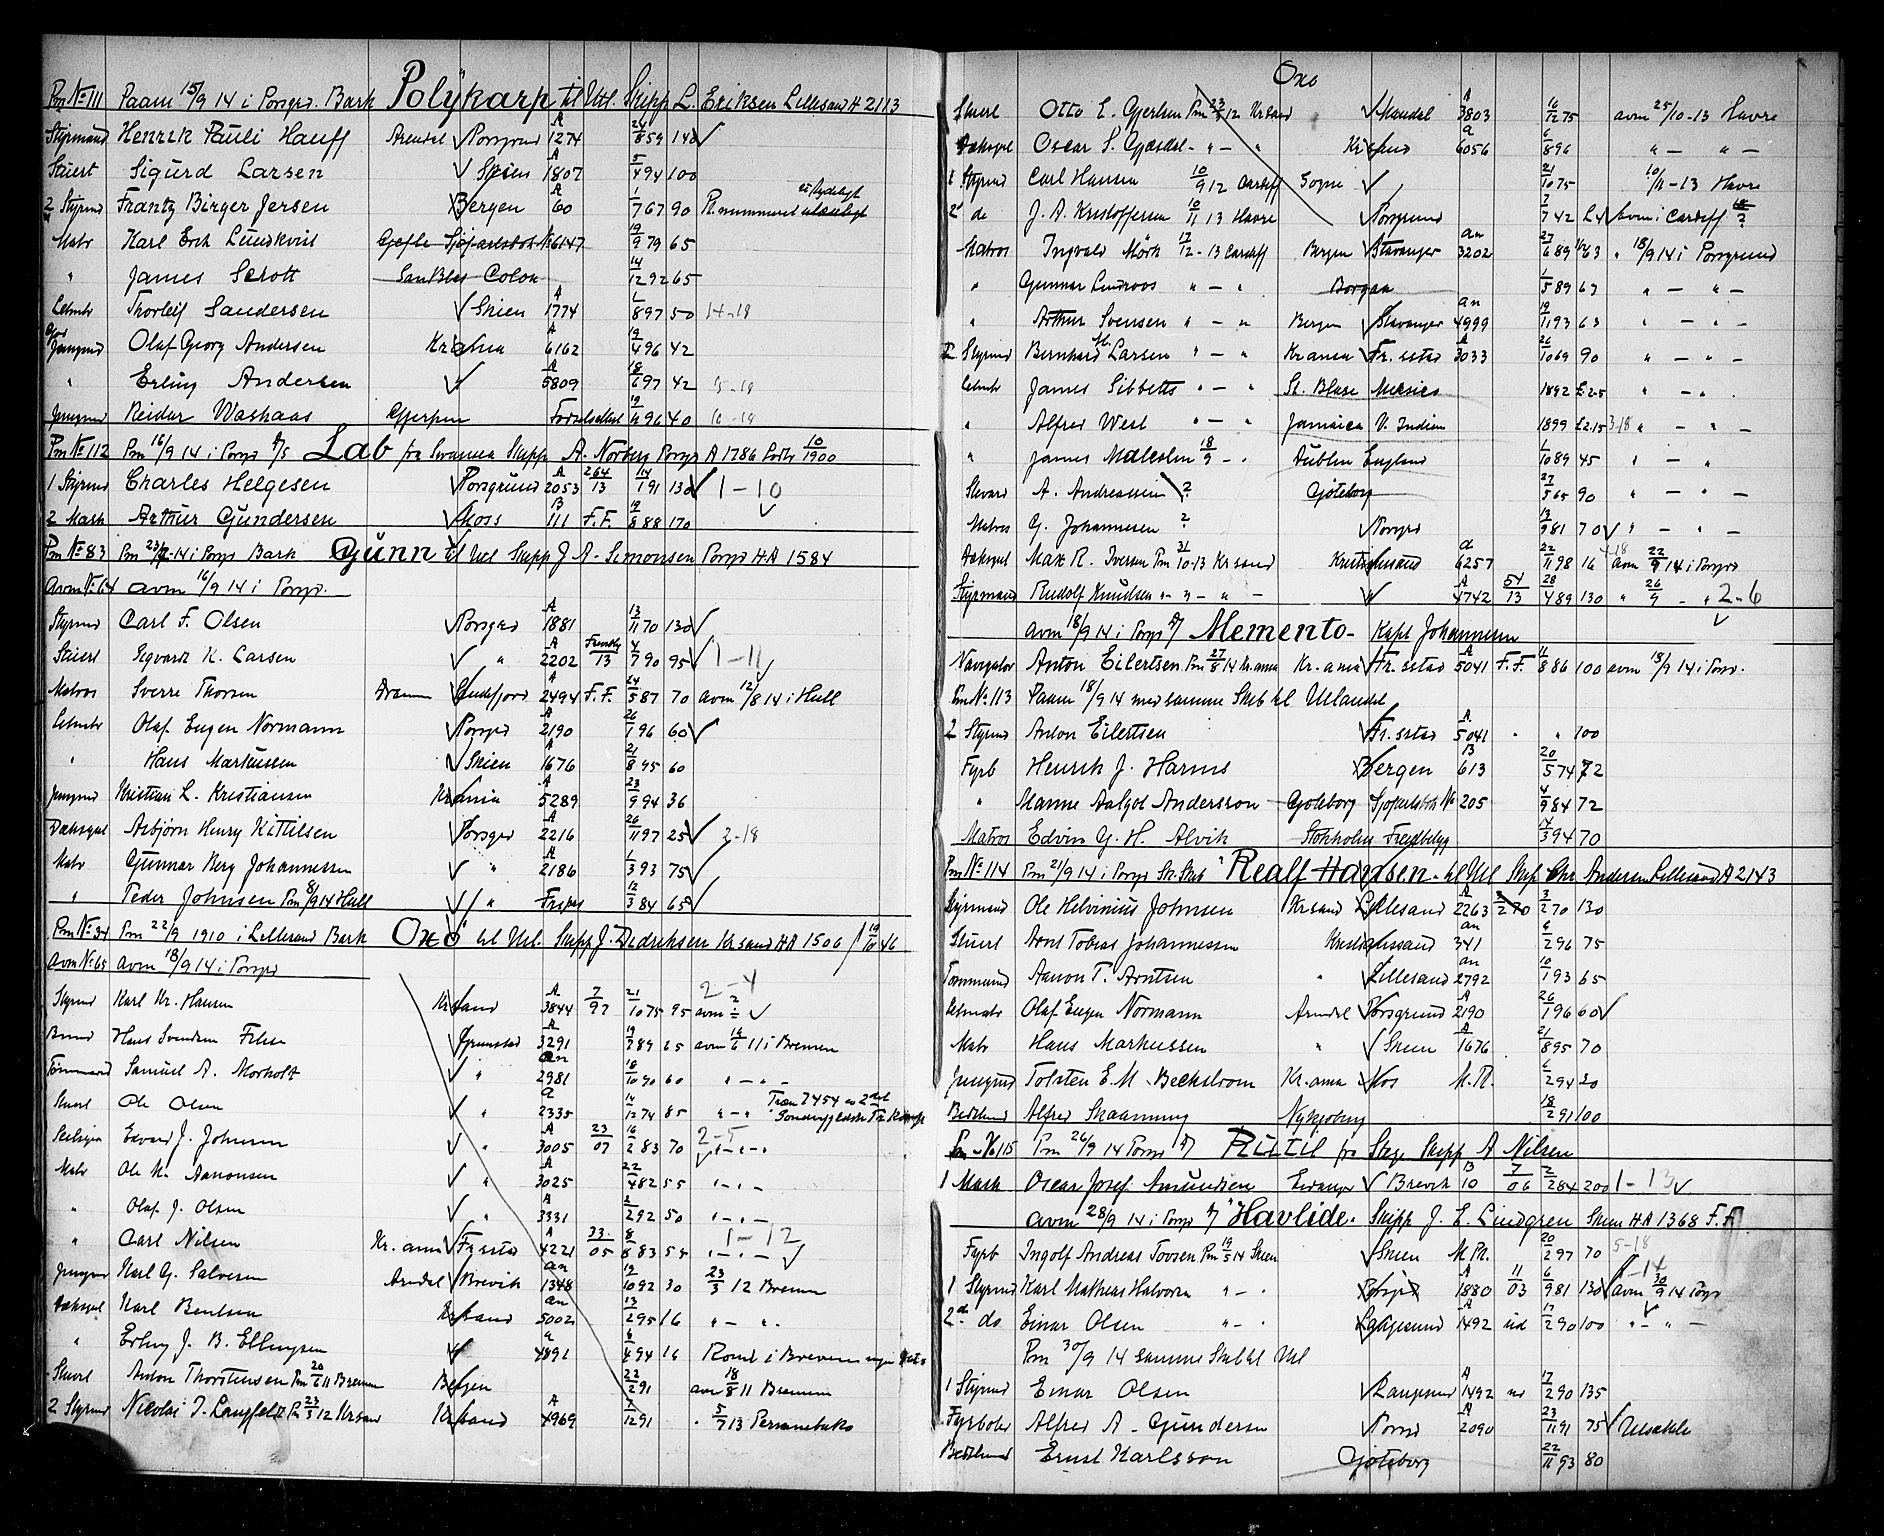 Pm No 111 Paam 15/9 14 i Porsgr. Bark Polykarp til Utl. Skipp L. Eriksen Lillesand A 2113
Styrmand Henrik Pauli Hauff Arendal Porsgrund A 1274 24/8 59 140
Stuert Sigurd Larsen Skien A 1807 5/4 94 100
2 Styrmd Frantz Birger Jersen Bergen A 60 1/7 67 90
Matr Karl Erik Lundkvist Gefle Sjöfartsbok No 6147 19/9 79 65
" James Scrott San Blas Colon 14/12 92 65
Letmtr Thorleif Sandersen Skien A 1774 1/8 97 50 14-18
Jungmd Olaf Georg Andersen Kr.ania A 6162 19/4 96 42
" Erling Andersen A 5809 18/6 97 42 15-18
Jungmd Reidar Washaas Gjerpen Fødselsattest 19/4 96 40 16-18
Pm No 112 Pm 16/9 14 i Porsgr D/S Lab fra Svansea Skipp A. Norberg Porsgr A 1786 10/1900
1 Styrmd Charles Helgesen Porsgrund A 2053 264/13 14/1 91 130 1-10
2 Mask Arthur Gundersen Moss B 111 F.F. 19/8 88 170
Pm No 83 Pm 23/7-14 i Porsgr Bark Gunn til Utl Skipp J A. Simonsen Porsgr HA 1584
Avm No 64 avm 16/9 14 i Porsgr.
Styrmd Carl F. Olsen Porsgrd A 1881 13/11 70 130
Stuert Sigvardt K. Larsen " A 2202 13 4/7 90 95 1-11
Matros Sverre Thorsen Drammen Sandefjord A 2494 F.F. 24/5 87 70 avm 12/8 14 i Hull
Letmtr Olaf Eugen Normann Porsgrd A 2190 26/1 96 60
" Hans Markussen Skien A 1676 21/8 95 60
Jungmd Kristian L. Kristiansen Kr.ania A 5289 23/9 94 36
Dæksgut Asbjørn Henry Kittilsen Porsgrd A 2216 26/11 97 25 2-18
Matr Gunnar Berg Johannessen " A 2186 1/3 93 75
" Peder Johnsen Pm 8/9 14 i Hull " 12/3 84 65
Pm No 34 Pm 22/9 1910 i Lillesand Bark Oxo til Utl. Skipp J. Didriksen Kr.sand HA 1506
Avm No 65 avm 18/9 14 i Porsgr
Styrmd Karl Kr. Hansen Kr.sand A 3844 7/97 21/10 75 95 avm ? 2-4
Hans Svendsen Grimstad A 3291 65 avm 14/6 11 i Bremen
Tømmermd Samuel A. Morholt " an 2981 18/10 90 60 " - " -
Stuert Ole Olsen " a 2335 14/12 74 85 " - "
Edvard J. Johnsen " A 3005 23/07 16/2 83 70 2-5 " - " -
Matr Ole K. Aanonsen " A 3025 22/4 82 55 " - " -
" Olaf J. Olsen " A 3331 2/2 92 50 " - " -
" Carl Nilsen Kr.ania Fr.stad A 4221 23/05 8/8 83 55 1-12 " - " -
Jungmd Karl G. Salvesen Arendal Brevik an 1348 19/10 92 30 23/3 12 Bremen
Dæksgut Karl Bentsen Kr.sand an 5002 13/2 95 16 " - "
" Erling J. B. Ellingsen a 4891 6/4 94 16
Stuert Anton Thorstensen Pm 20/6 11 Bremen Bergen 22/2 91 avm 18/8 11 Bremen
2 Styrmd Nicolai J. Langfeldt Pm 23/3 12 Kr.sand Kr.sand A 4969 7/12 91 " 5/7 13
Oxo
Stuert Otto E. Gjertsen Pm 23/3 12 Kr.sand Mandal A 3803 16/12 75 avm 25/10-13 Havre
Dæksgut Oscar S. Gjesdal " - " Kr.sand a 6056 6/8 96 " - " -
1 Styrmd Carl Hansen 10/9 12 Cardiff Sogne 21/10 75 10/11-13 Havre
2' do J. A. Kristoffersen 10/11 13 Havre Porsgrund 7/7 42 £4 avm i Cardiff ?
Matros Ingvald Mörk 17/12-13 Cardiff Bergen Stavanger an 3202 27/6 89 63 " 18/9 14 i Porsgrund
" Gunnar Lindroos " - " Borgaa 1/5 89 63 " - " -
" Arthur Svensen " - " Bergen Stavanger an 4999 19/11 93 63 " - " -
2 Styrmd Bernhard M. Larsen " - " Kr.ania Fr.stad A 3033 26/10 69 90 " - " -
Letmtr James Sibbetts " - " St. Blase Mexico 1892 £2.5 " - " .
" Alfred West " - " Jamaica V. Indien 1899 £2.15 3-18 " - " -
" James Malcolm 18/9 - " Dublin England 1/10 89 45 " - "
Stevard A. Andreassen ? Göteborg 27/5 65 90 " - " -
Matros G. Johannesen ? Porsgrd 13/9 81 70 " - " -
Dæksgut Max R. Iversen Pm 31/10-13 Kr.sand Kristiansand a 6257 22/11 98 16 4-18 avm 22/9 14 i Porsgrd
Styrmand Rudolf Knudsen " - " - A 4742 54/13 28/4 89 130 " 26/9 - " 2-6
avm 18/9 14 i Porsgr D/S Memento- Kapt Johannesen
Navigatør Anton Eilertsen Pm 27/8 14 Kr.ania Kr.ania Fr.stad A 5041 F.F. 11/8 86 100 avm 18/9 14 i Porsgr.
Pm No 113 Paam 18/9 14 med samme Skib til Utlandet
2 Styrmd Anton Eilertsen Fr.stad A 5041 " " 100
Fyrb Henrik J. Harms Bergen B 613 20/5 74 72
" Manne Andersson Göteborg Sjöfartsbok No 205 4/9 84 72
Matros Edvin G. H. Alvik Stokholm 14/3 94 70
Pm No 114 Pm 21/9 14 i Porsgr Sk.Skib "Realf Hansen. til Utl Skip Chr Andersen Lillesand A 2143
Styrmand Ole Helvinius Johnsen Kr.sand Lillesand A 2263 3/2 70 130
Stuert Arnt Tobias Johannessen Kristiansand an 341 6/2 96 75
Tømmermd Aanon T. Arntsen " Lillesand an 2792 10/1 93 65
Letmatr Olaf Eugen Normann Arendal Porsgrund A 2190 26/1 96 60
Matr Hans Markussen " Skien A 1676 21/8 95 70
Jungmd Tolsten E. M. Beckstrøm Kr.ania Mos M.R. 6/2 94 20
Bedstmd Alfred Skaanning Nykjøbing 18/2 91 100
Pm No 115 Pm 26/9 14 Porsgr D/S Pustil fra Stege Skipp A Nilsen
1 Mask Oscar Josef Amundsen Eidanger Brevik B 10 7/06 2/2 84 200 1-13
avm 28/9 14 i Porsgr D/S "Havlide. Skipp J. E. Lindgren Skien HA 1368 F.F
Fyrb Ingolf Andreas Tovsen Pm 19/5 14 Skien Skien M.R. 20/2 97 70 5-18
1 Styrmd Karl Mathias Halvorsen " - " Porsgrd A 1880 11/03 6/9 81 130 1-14 avm 30/9 14 Porsgr
2 do Einar Olsen " - " Langesund A 1492 ud 17/2 90 100 " - " -
Pm 30/9 14 samme Skib til Utl
1 Styrmd Einar Olsen Langesund A 1492 ud 17/2 90 135
Fyrbøter Alfred A. Gundersen Porsgrd A 2090 23/11 91 75
Bedstmd Ernst Karlsson Göteborg 22/11 93 80